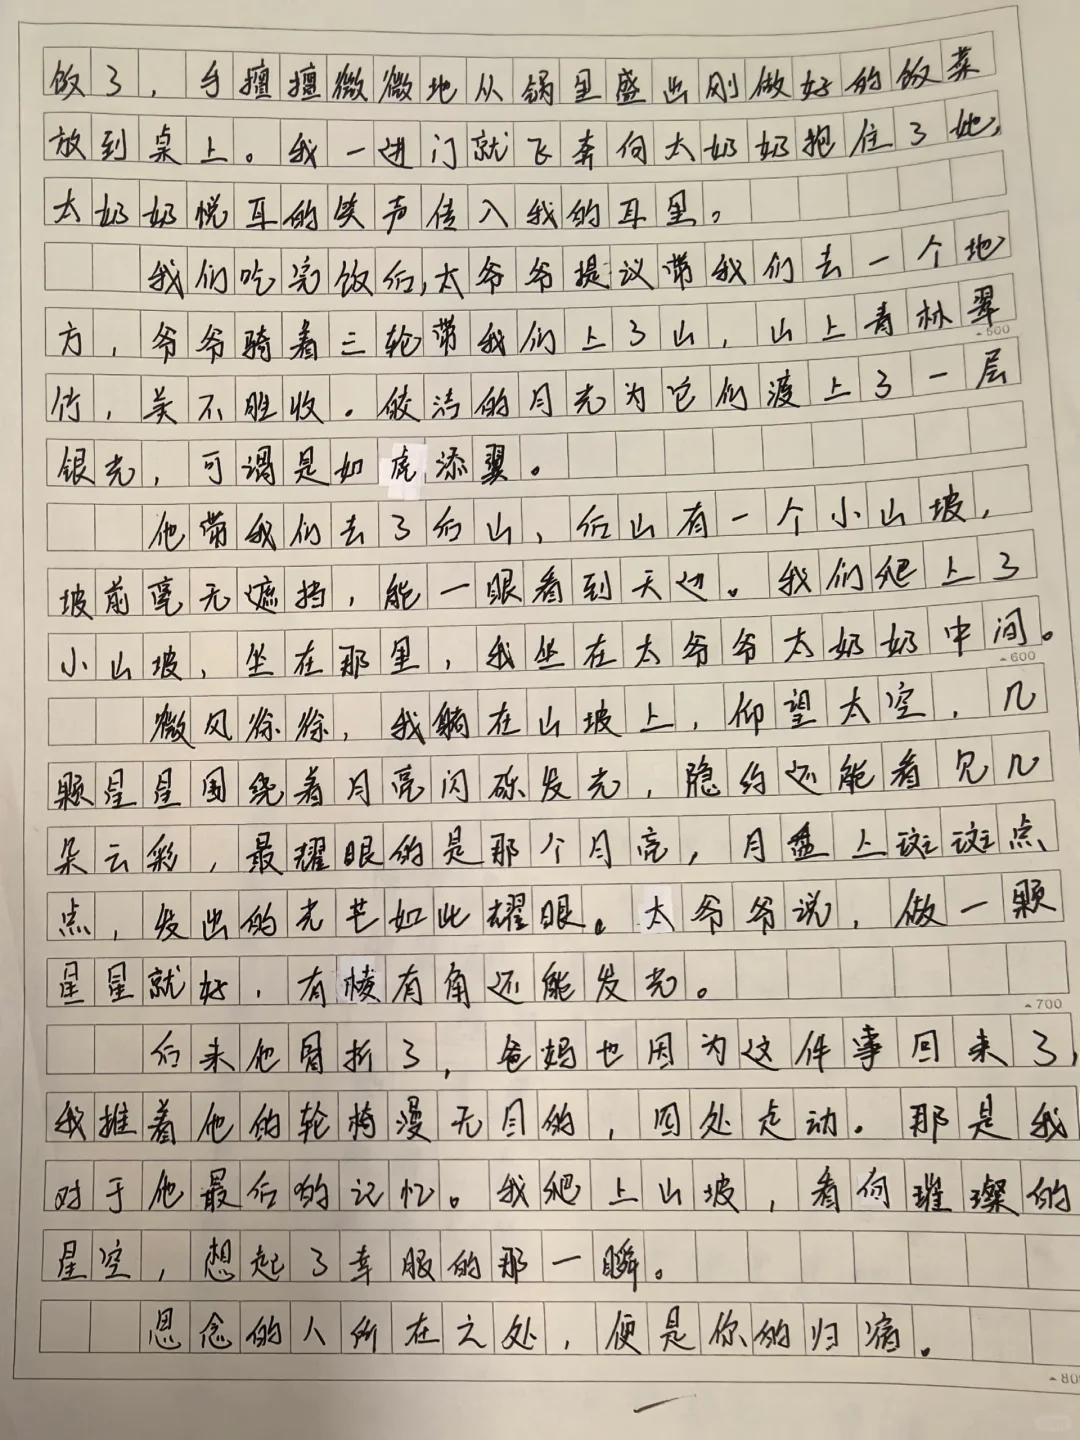 饭了，手擅擅微微地从锅里盛出刚做好的饭菜
放到桌上。我一进门就飞奔向太奶奶抱住了她，
太奶奶悦耳的笑声传入我的耳里。
我们吃完饭后，太爷爷提议带我们去一个地
方，爷爷骑着三轮带我们上了山，山上青林翠
竹，美不胜收。皎洁的月光为它们渡上了一层
银光，可谓是如虎添翼。
他带我们去了后山，后山有一个小山坡，
坡前毫无遮挡，能一眼看到天边。我们爬上了
小山坡，坐在那里，我坐在太爷爷太奶奶中间。
微风徐徐，我躺在山坡上，仰望太空，几
颗星星围绕着月亮闪砾发光，隐约还能看见几
朵云彩，最耀眼的是那个月亮，月盘上斑斑点
点，发出的光芒如此耀眼。太爷爷说，做一颗
星星就好，有棱有角还能发光。
后来他骨折了，爸妈也因为这件事回来了，
我推着他的轮椅漫无目的，四处走动。那是我
对于他最后的记忆。我爬上山坡，看向璀璨的
星空，想起了幸服的那一瞬。
思念的人所在之处，便是你的归宿。
500
600
700